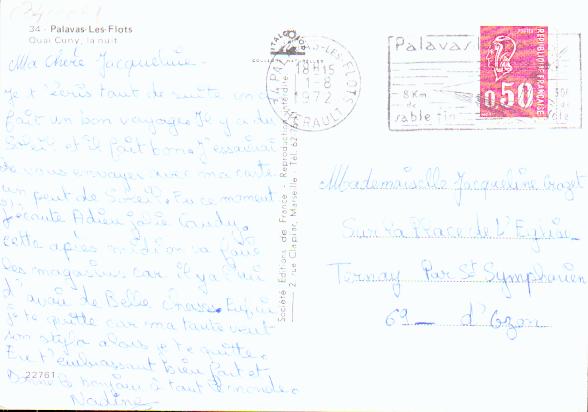 34 - Palavas-Les-Flots
Quai Cuny, la nuit
Ma Chère Jacqueline -
Je t'écris tout de suite
fait un bon voyage. Il y a du
Soleil et il fait bon. J'essaierai
de vous envoyer avec ma carte
un peut de Soleil. En ce moment
j'écoute Adieu jolie Candy.
cette après midi on va faire
les magasins car il y a
d'avoir de Belle
je te quitte car ma tante veut
alors je te quitte.
En t'embrassant bien fort et
bonjour à tout le monde.
Nadine
22761
Société Editions de France - Reproduction interdite
2, rue Clapier, Marseille - Tél. 62
PALAVAS-LES-FLOTS
18H15
-8
1972
HERAULT
Palavas
8 Km
de
sable fin
POSTES
0,50
REPUBLIQUE FRANÇAISE
Mademoiselle Jacqueline
Sur la Place de L'Eglise
Ternay Par St Symphorien
69 d'Ozon